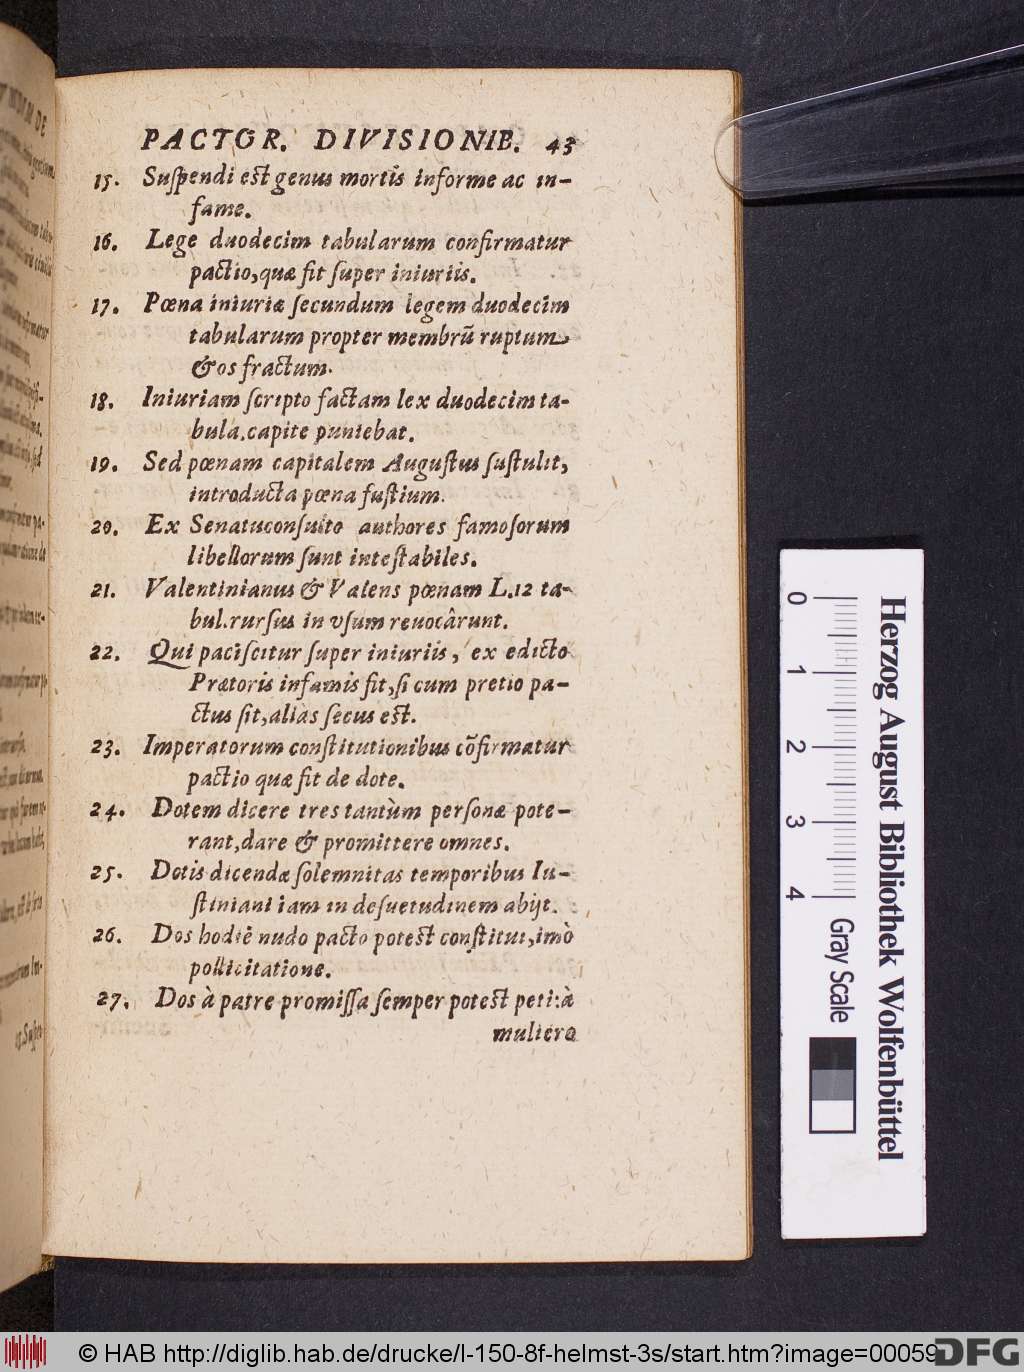 PACTOR. DIVISIONIB. 43
15. Suſpendi eſt genus mortis informe ac in-
fame.
16. Lege duodecim tabularum confirmatur
pactio, quæ fit ſuper iniuriis.
17. Pœna iniuriæ ſecundum legem duodecim
tabularum propter membrũ ruptum
& os fractum.
18. Iniuriam ſcripto factam lex duodecim ta-
bula. capite puniebat.
19. Sed pœnam capitalem Auguſtus ſuſtulit,
introducta pœna fuſtium.
20. Ex Senatuconſulto authores famoſorum
libellorum ſunt inteſtabiles.
21. Valentinianus & Valens pœnam L. 12 ta-
bul. rurſus in vſum reuocârunt.
22. Qui paciſcitur ſuper iniuriis, ex edicto
Prætoris infamis fit, ſi cum pretio pa-
ctus ſit, alias ſecus eſt.
23. Imperatorum conſtitutionibus cõfirmatur
pactio quæ fit de dote.
24. Dotem dicere tres tantùm perſonæ pote-
rant, dare & promittere omnes.
25. Dotis dicendæ ſolemnitas temporibus Iu-
ſtiniani iam in deſuetudinem abijt.
26. Dos hodiè nudo pacto poteſt conſtitui, imò
pollicitatione.
27. Dos à patre promiſſa ſemper poteſt peti: à
muliere
Herzog August Bibliothek Wolfenbüttel
0 1 2 3 4
Gray Scale
© HAB http://diglib.hab.de/drucke/l-150-8f-helmst-3s/start.htm?image=00059
DFG